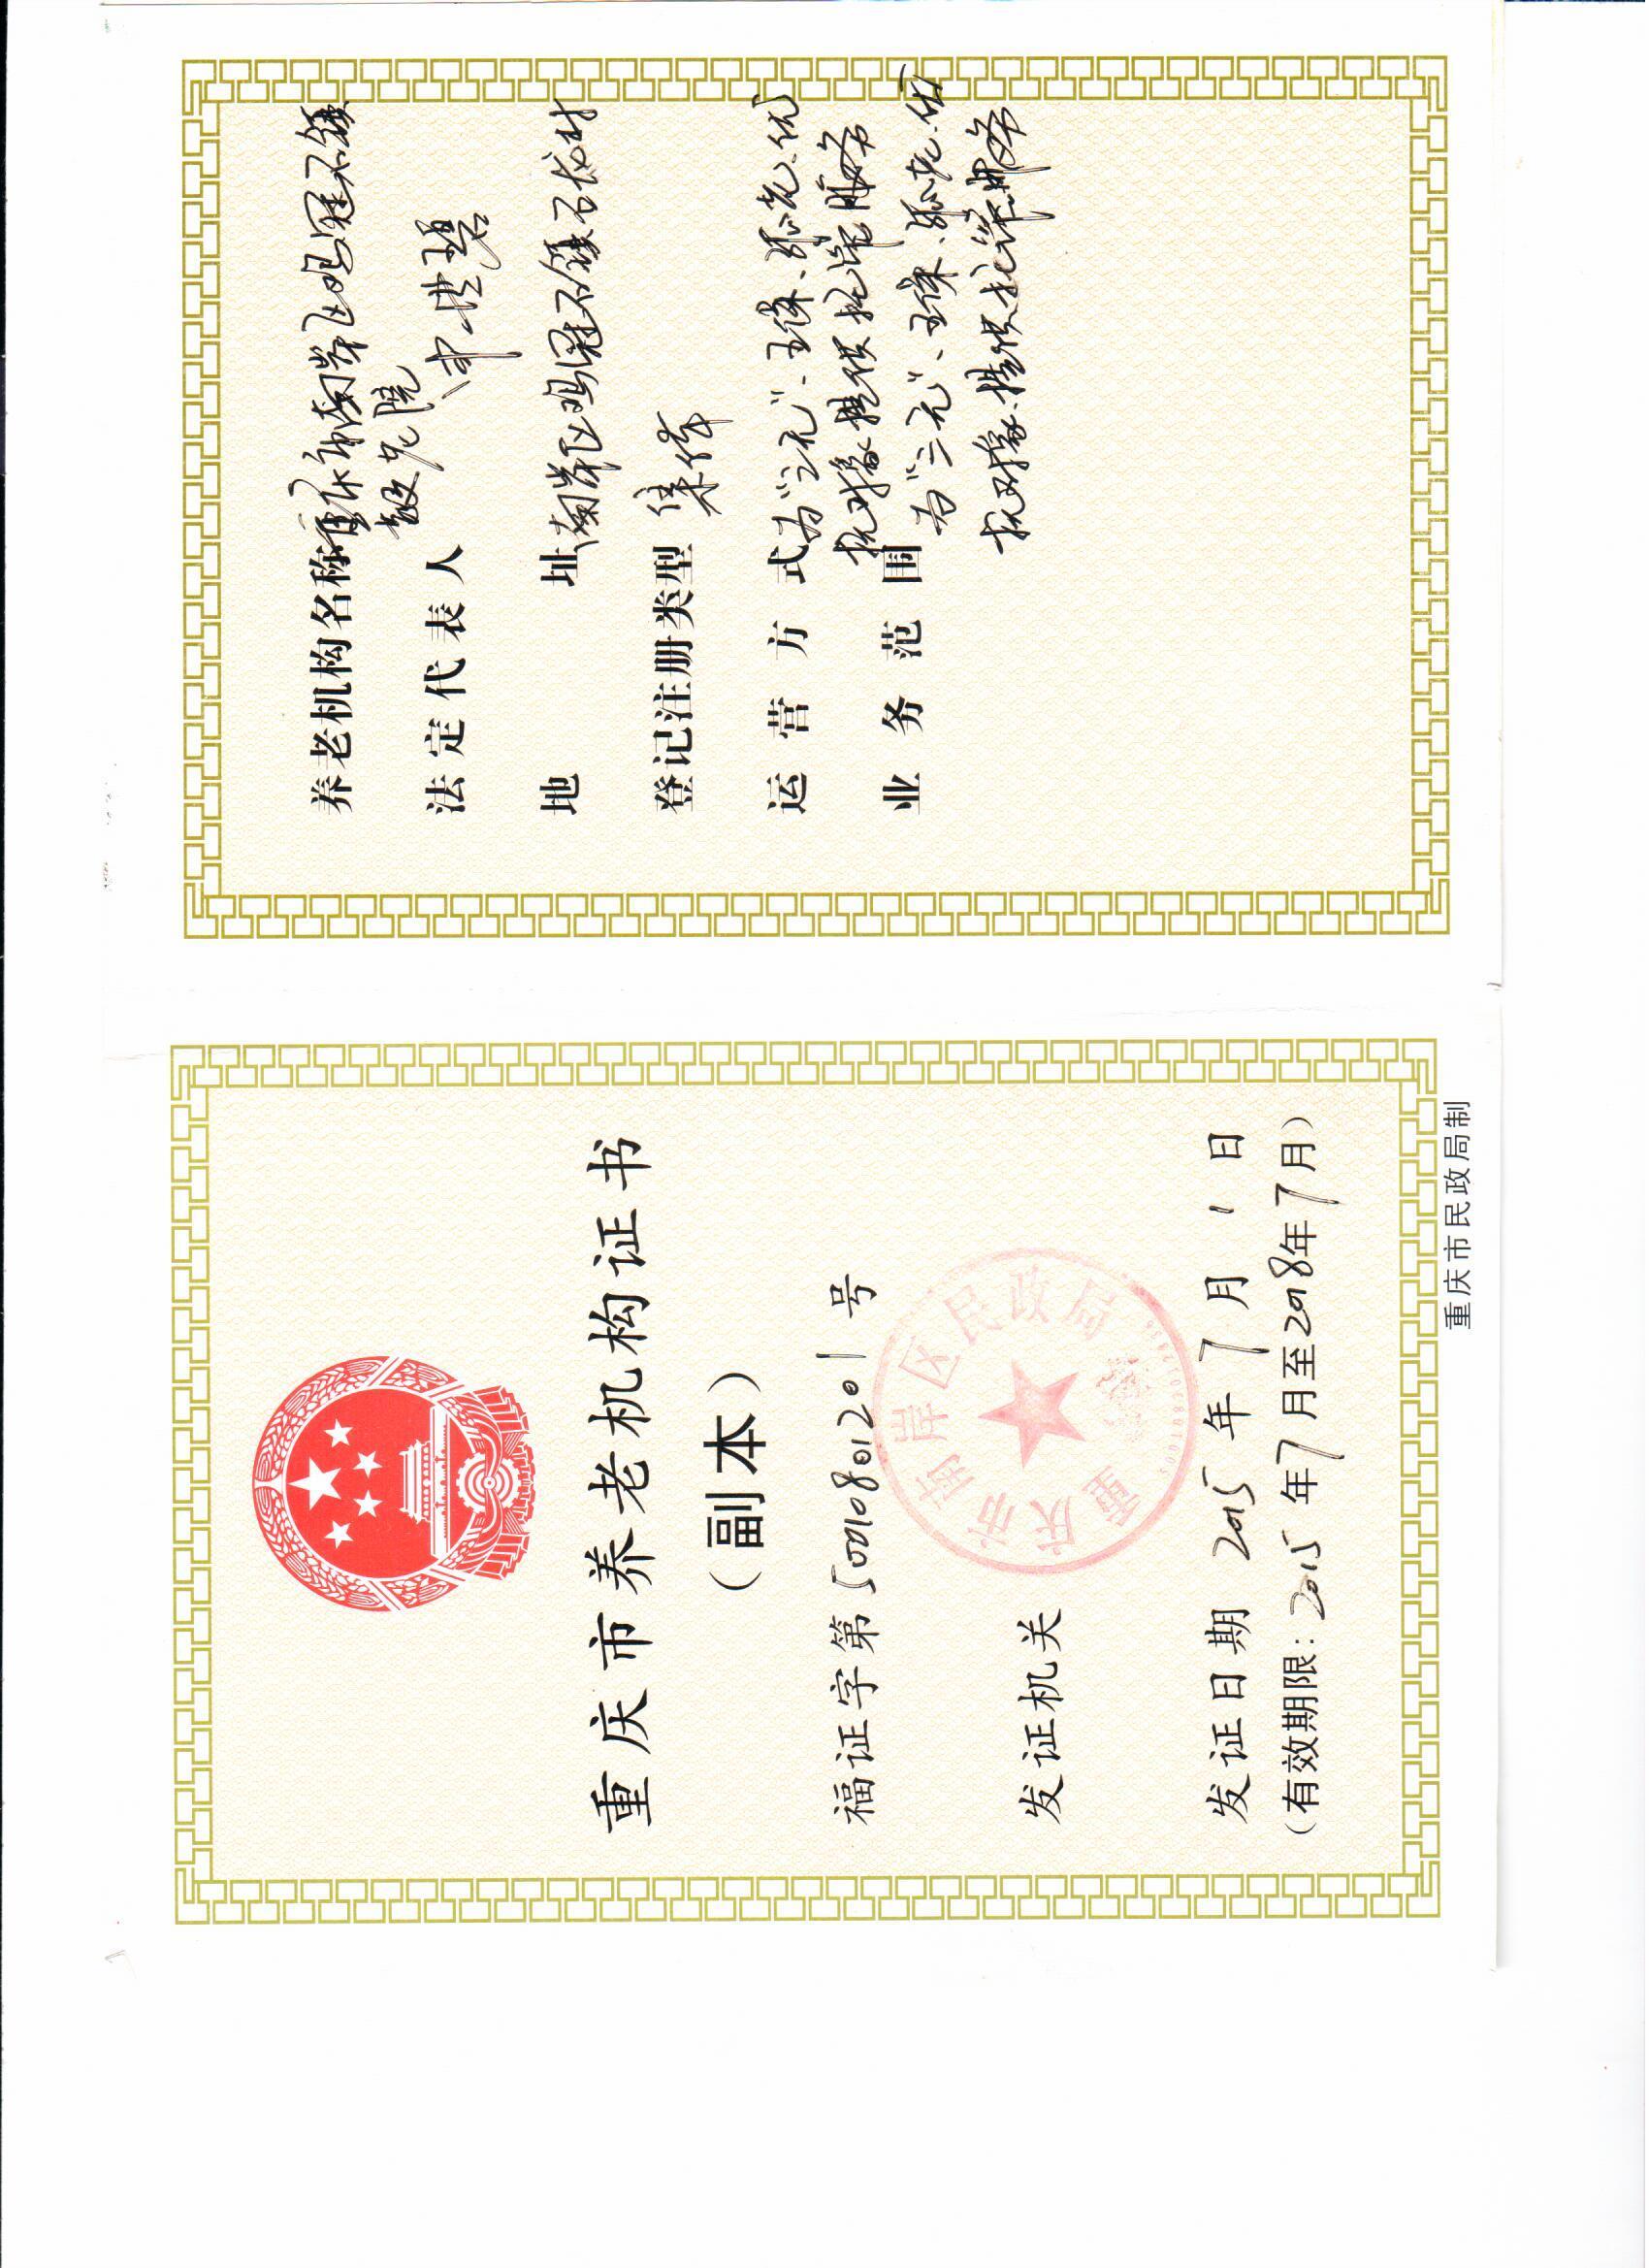 重庆市养老机构证书
（副本）
福证字第50010801201号
发证机关
重庆市南岸区民政局
发证日期 2015年7月1日
（有效期限：2015年7月至2018年7月）
重庆市民政局制
养老机构名称 重庆市南岸区鸡冠石镇
敬老院
法定代表人
地址 南岸区鸡冠石镇石龙村
登记注册类型 集体
运营方式 为“三无”、五保、孤老、优
抚对象提供托管服务
业务范围 为“三无”、五保、孤老、优
抚对象提供托管服务